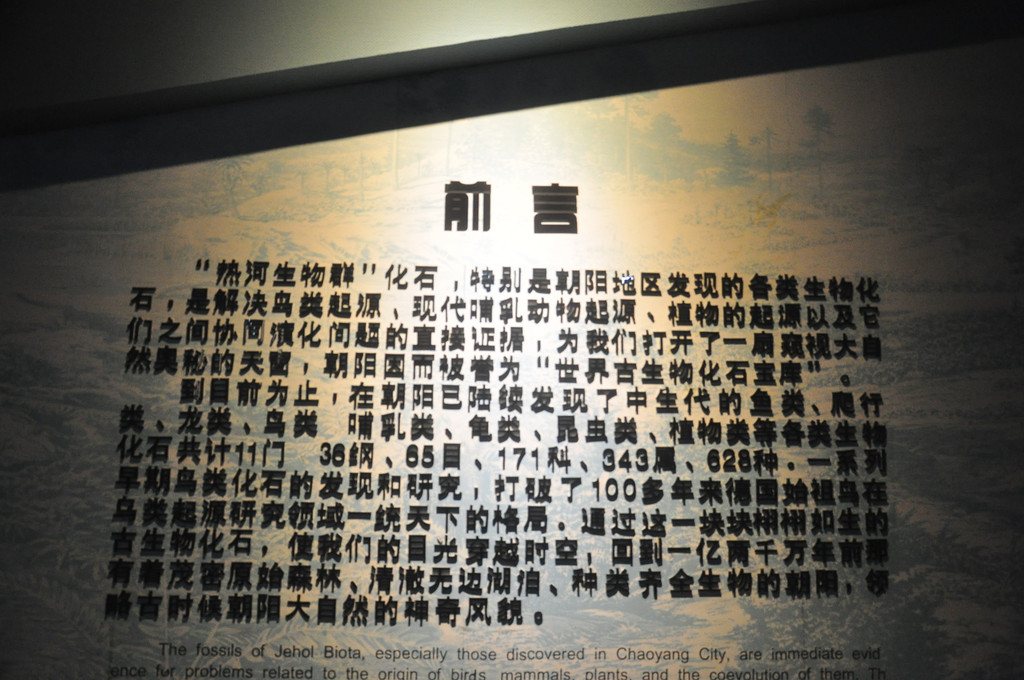 前言
“热河生物群”化石，特别是朝阳地区发现的各类生物化
石，是解决鸟类起源、现代哺乳动物起源、植物的起源以及它
们之间协同演化问题的直接证据，为我们打开了一扇窥视大自
然奥秘的天窗，朝阳因而被誉为“世界古生物化石宝库”。
到目前为止，在朝阳已陆续发现了中生代的鱼类、爬行
类、龙类、鸟类 哺乳类、龟类、昆虫类、植物类等各类生物
化石共计11门 36纲、65目、171科、343属、628种．一系列
早期鸟类化石的发现和研究，打破了100多年来德国始祖鸟在
鸟类起源研究领域一统天下的格局．通过这一块块栩栩如生的
古生物化石，使我们的目光穿越时空，回到一亿两千万年前那
有着茂密原始森林、清澈无边湖泊、种类齐全生物的朝阳，领
略古时候朝阳大自然的神奇风貌。
The fossils of Jehol Biota, especially those discovered in Chaoyang City, are immediate evid
ence for problems related to the origin of birds, mammals, plants, and the coevolution of them. Th